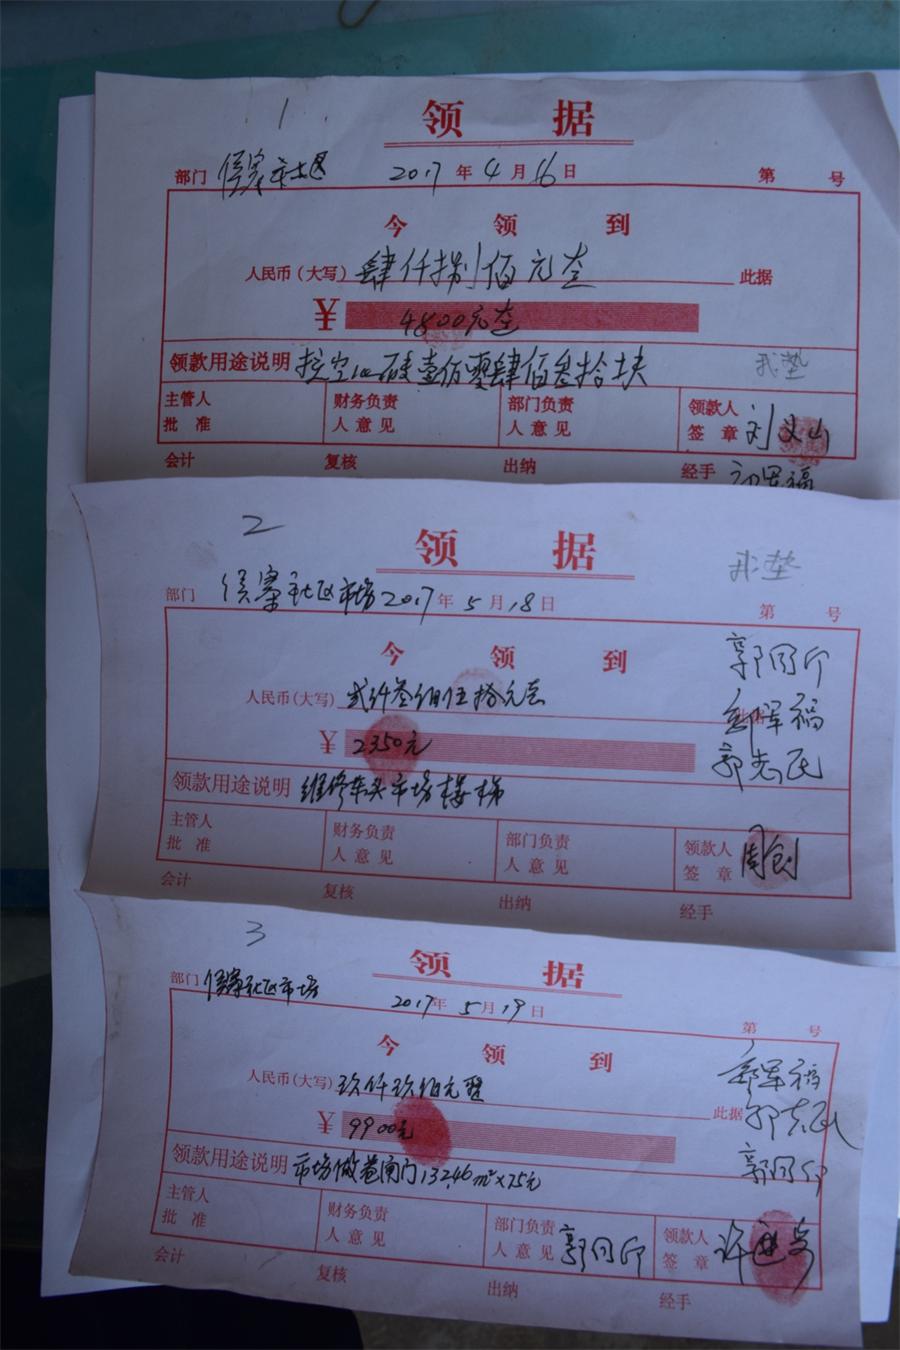 1
领 据
部门 侯寨市社区 2017 年 4 月 16 日 第 号
今 领 到
人民币(大写) 肆仟捌佰元整 此据
¥ 4800元整
领款用途说明 挖空 壹佰零肆佰叁拾块 我垫
主管人 批准 财务负责人意见 部门负责人意见 领款人签章 刘义山
会计 复核 出纳 经手
2
领 据
我垫
部门 侯寨社区市场 2017 年 5 月 18 日 第 号
今 领 到
郭同行
人民币(大写) 贰仟叁佰伍拾元整 此据
¥ 2350元
郭志民
领款用途说明 维修车头市场楼梯
主管人 批准 财务负责人意见 部门负责人意见 领款人签章 周创
会计 复核 出纳 经手
3
领 据
部门 侯寨社区市场 2017 年 5 月 19 日
第 号
今 领 到
人民币(大写) 玖仟玖佰元整 此据
郭志民
¥ 9900元
领款用途说明 市场做卷闸门132.46m²×75元
主管人 批准 财务负责人意见 部门负责人意见 领款人签章
会计 复核 出纳 经手